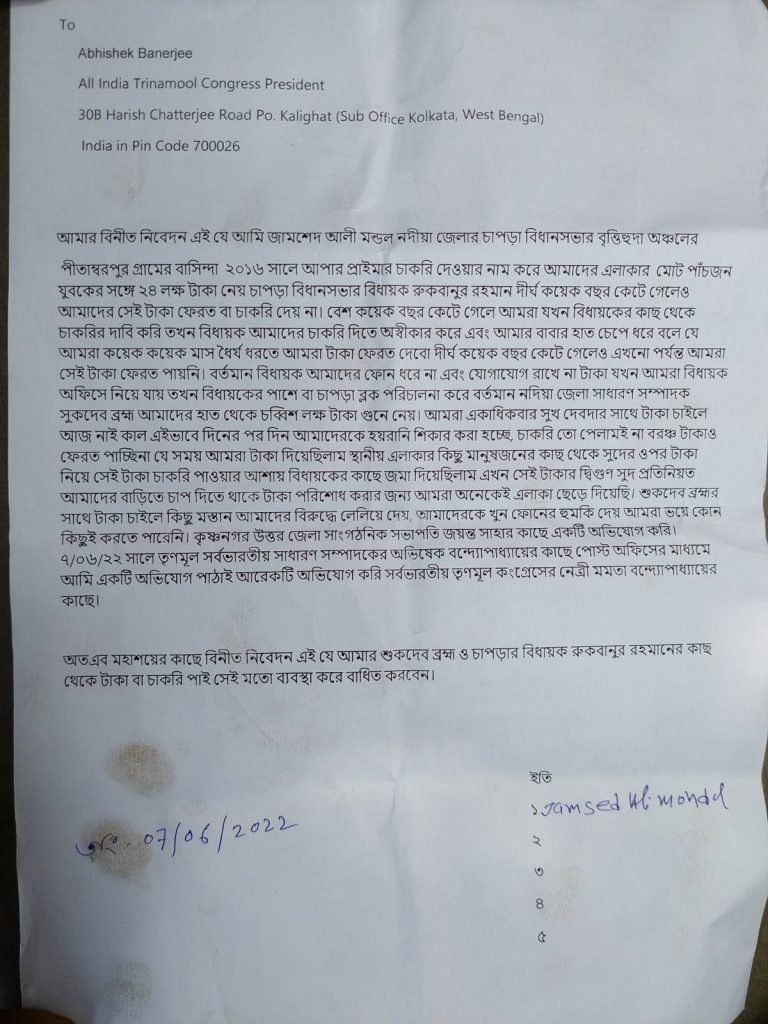 To
Abhishek Banerjee
All India Trinamool Congress President
30B Harish Chatterjee Road Po. Kalighat (Sub Office Kolkata, West Bengal)
India in Pin Code 700026
আমার বিনীত নিবেদন এই যে আমি জামশেদ আলী মন্ডল নদীয়া জেলার চাপড়া বিধানসভার বৃত্তিহুদা অঞ্চলের
পীতাম্বরপুর গ্রামের বাসিন্দা ২০১৬ সালে আপার প্রাইমার চাকরি দেওয়ার নাম করে আমাদের এলাকার মোট পাঁচজন
যুবকের সঙ্গে ২৪ লক্ষ টাকা নেয় চাপড়া বিধানসভার বিধায়ক রুকবানুর রহমান দীর্ঘ কয়েক বছর কেটে গেলেও
আমাদের সেই টাকা ফেরত বা চাকরি দেয় না। বেশ কয়েক বছর কেটে গেলে আমরা যখন বিধায়কের কাছ থেকে
চাকরির দাবি করি তখন বিধায়ক আমাদের চাকরি দিতে অস্বীকার করে এবং আমার বাবার হাত চেপে ধরে বলে যে
আমরা কয়েক কয়েক মাস ধৈর্য ধরতে আমরা টাকা ফেরত দেবো দীর্ঘ কয়েক বছর কেটে গেলেও এখনো পর্যন্ত আমরা
সেই টাকা ফেরত পায়নি। বর্তমান বিধায়ক আমাদের ফোন ধরে না এবং যোগাযোগ রাখে না টাকা যখন আমরা বিধায়ক
অফিসে নিয়ে যায় তখন বিধায়কের পাশে বা চাপড়া ব্লক পরিচালনা করে বর্তমান নদিয়া জেলা সাধারণ সম্পাদক
সুকদেব ব্রহ্ম আমাদের হাত থেকে চব্বিশ লক্ষ টাকা গুনে নেয়। আমরা একাধিকবার সুখ দেবদার সাথে টাকা চাইলে
আজ নাই কাল এইভাবে দিনের পর দিন আমাদেরকে হয়রানি শিকার করা হচ্ছে, চাকরি তো পেলামই না বরঞ্চ টাকাও
ফেরত পাচ্ছিনা যে সময় আমরা টাকা দিয়েছিলাম স্থানীয় এলাকার কিছু মানুষজনের কাছ থেকে সুদের ওপর টাকা
নিয়ে সেই টাকা চাকরি পাওয়ার আশায় বিধায়কের কাছে জমা দিয়েছিলাম এখন সেই টাকার দ্বিগুণ সুদ প্রতিনিয়ত
আমাদের বাড়িতে চাপ দিতে থাকে টাকা পরিশোধ করার জন্য আমরা অনেকেই এলাকা ছেড়ে দিয়েছি। শুকদেব ব্রহ্মর
সাথে টাকা চাইলে কিছু মস্তান আমাদের বিরুদ্ধে লেলিয়ে দেয়, আমাদেরকে খুন ফোনের হুমকি দেয় আমরা ভয়ে কোন
কিছুই করতে পারেনি। কৃষ্ণনগর উত্তর জেলা সাংগঠনিক সভাপতি জয়ন্ত সাহার কাছে একটি অভিযোগ করি।
৭/০৬/২২ সালে তৃণমূল সর্বভারতীয় সাধারণ সম্পাদকের অভিষেক বন্দ্যোপাধ্যায়ের কাছে পোস্ট অফিসের মাধ্যমে
আমি একটি অভিযোগ পাঠাই আরেকটি অভিযোগ করি সর্বভারতীয় তৃণমূল কংগ্রেসের নেত্রী মমতা বন্দ্যোপাধ্যায়ের
কাছে।
অতএব মহাশয়ের কাছে বিনীত নিবেদন এই যে আমার শুকদেব ব্রহ্ম ও চাপড়ার বিধায়ক রুকবানুর রহমানের কাছ
থেকে টাকা বা চাকরি পাই সেই মতো ব্যবস্থা করে বাধিত করবেন।
ইতি
১ Jamsed Ali mondal
তাং - 07/06/2022
২
৩
৪
৫